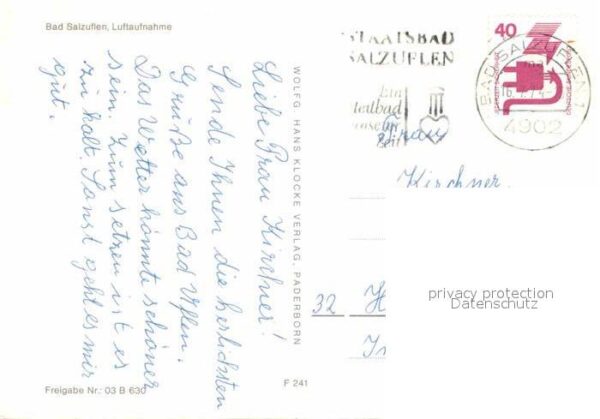 Bad Salzuflen, Luftaufnahme
Liebe Frau Kirschner!
Sende Ihnen die herlichsten
Grüße aus Bad Uflen.
Das Wetter könnte schöner
sein. Zum setzen ist es
zu kalt. Sonst geht es mir
gut.
Freigabe Nr.: 03 B 630
WOLFG. HANS KLOCKE VERLAG, PADERBORN
F 241
STAATSBAD
SALZUFLEN
Ein
Heilbad
unserer
Zeit
40
BAD SALZUFLEN 1
4902
Frau
Kirschner.
32 H
privacy protection
Datenschutz